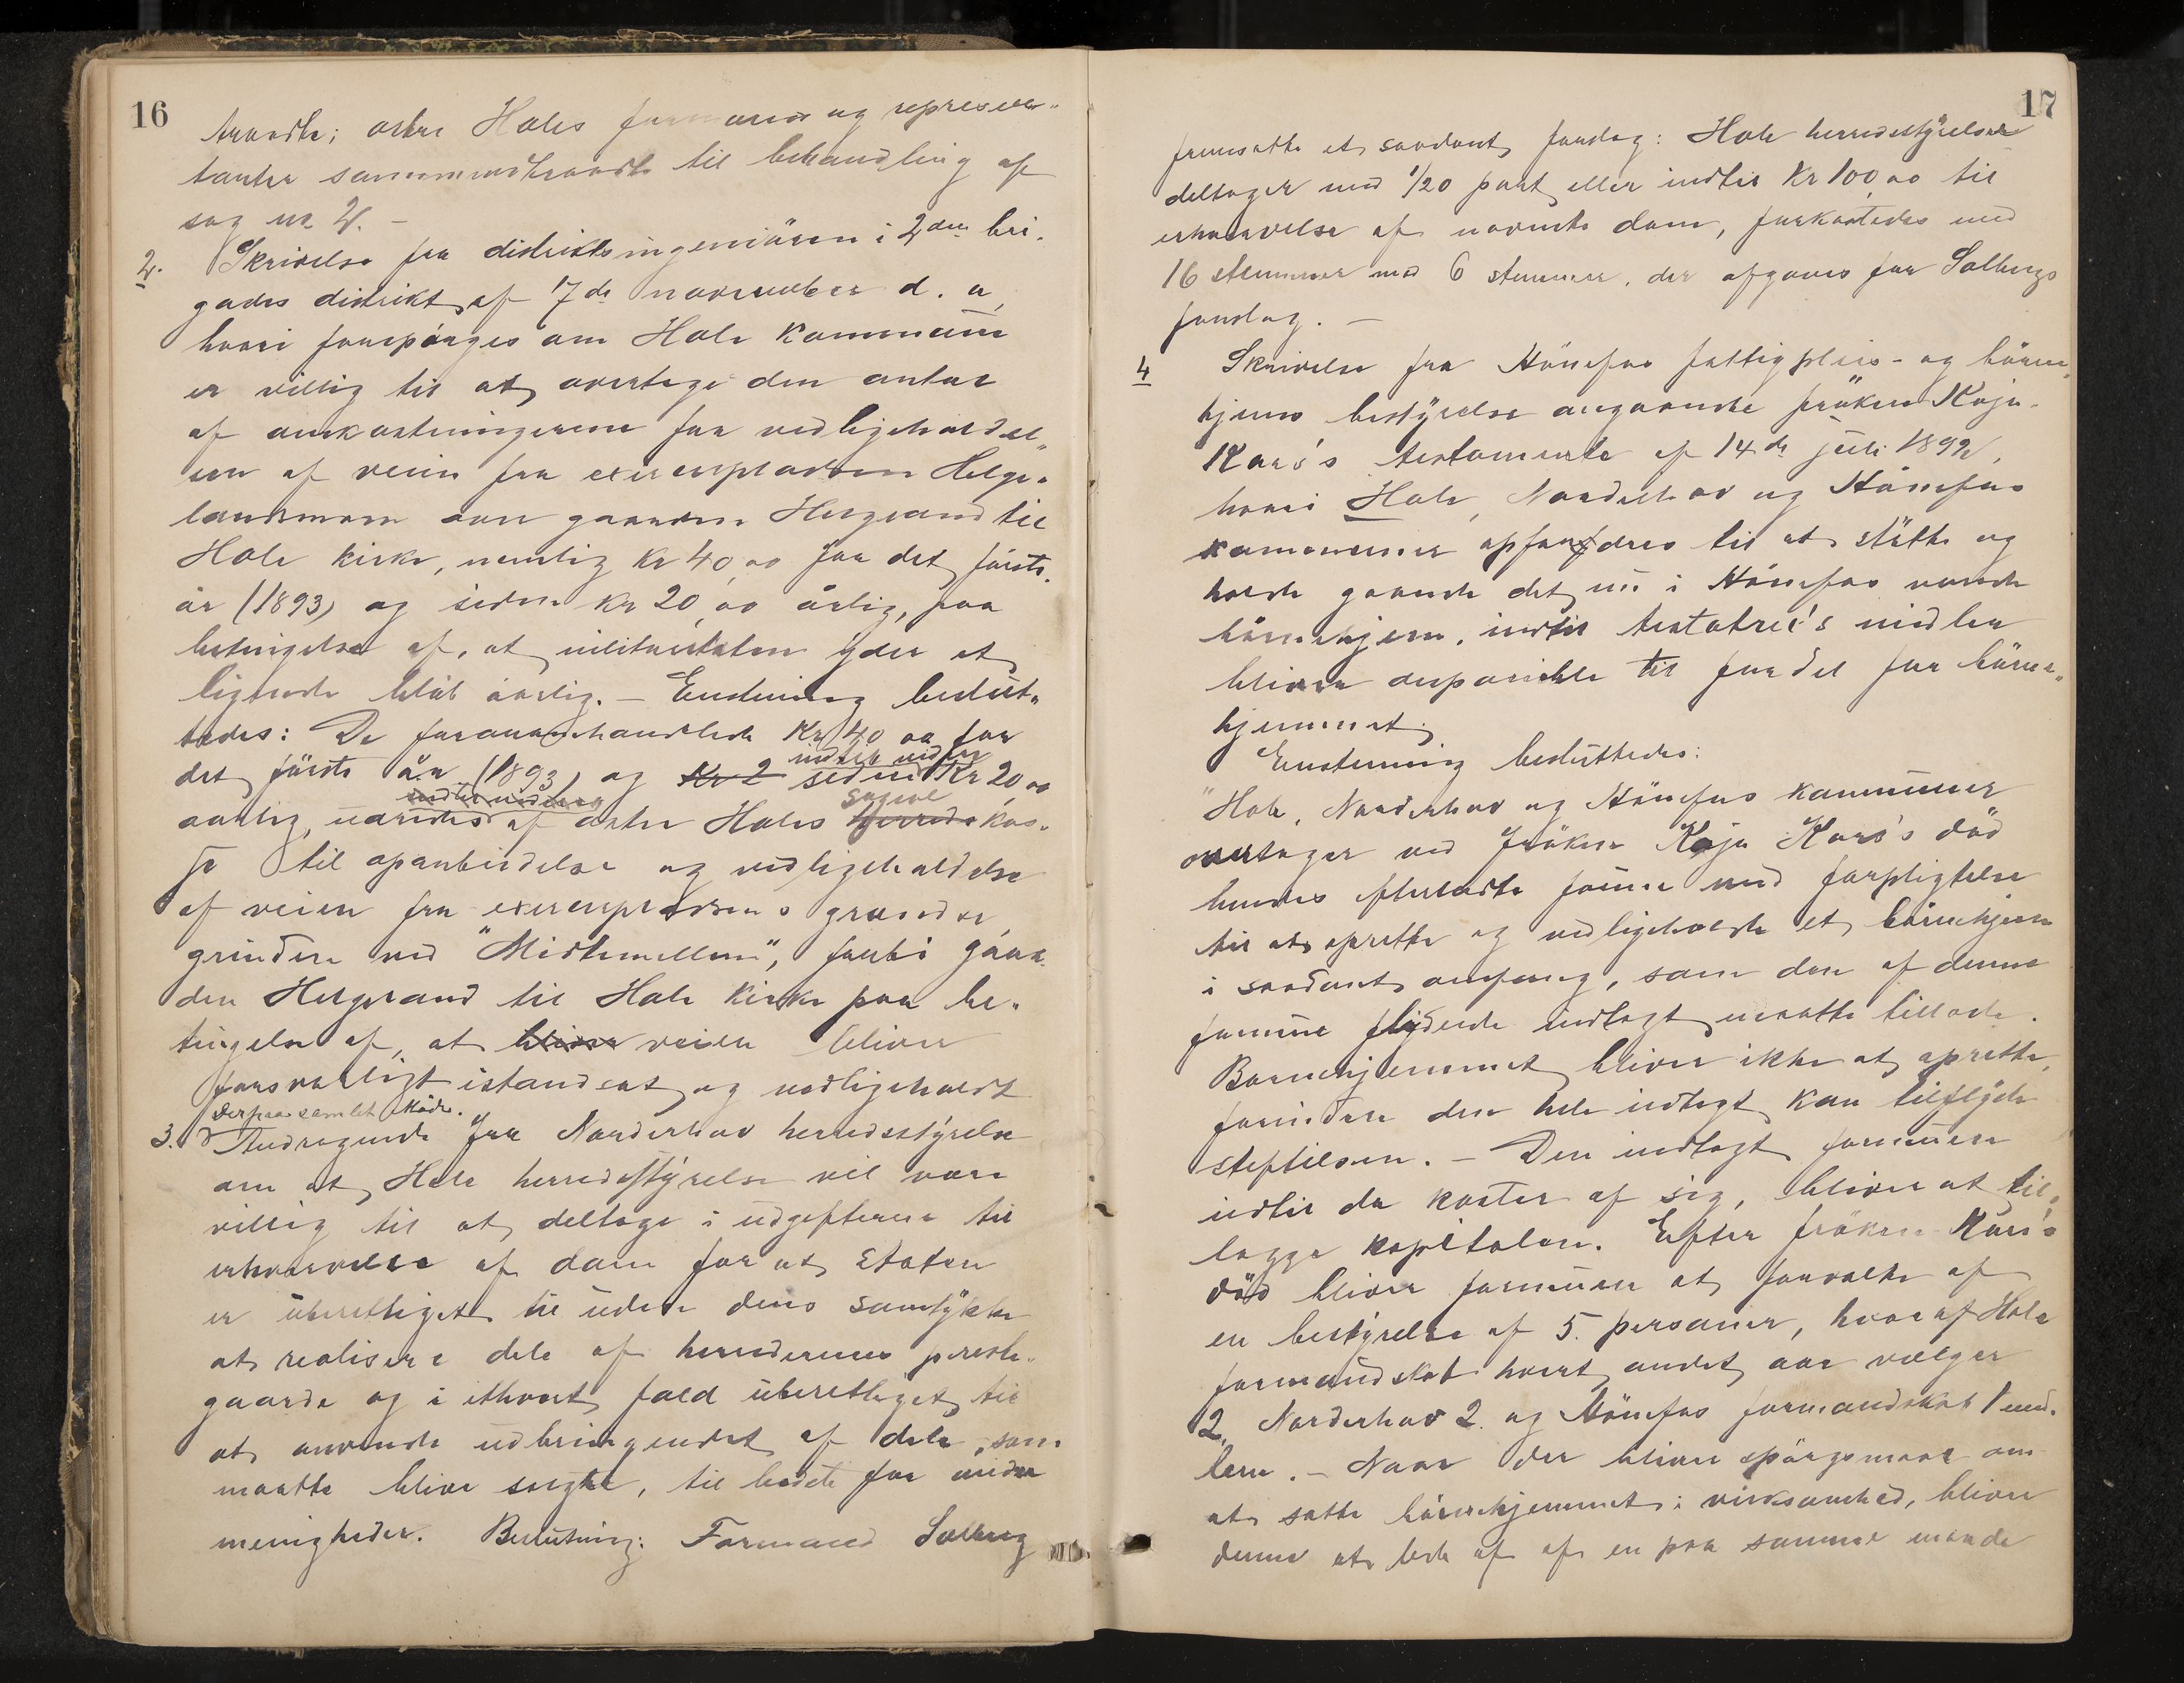 16
traadte; østre Holes formænd og represen-
tanter sammentraadte til behandling af
sag nr 2. -
2. Skrivelse fra distriktsingeniøren i 2den bri-
gades distrikt af 7de november d. a,
hvori forespørges om Hole kommune
er villig til at overtage den
af omkostningerne for vedligeholdel-
sen af veien fra exercerpladsen Helge-
landsmoen over gaarden Helgerand til
Hole kirke, nemlig Kr 40,00 for det første
år (1893) og siden Kr 20,00 årlig, paa
betingelse af, at militæretaten yder et
lignende beløb årlig. - Enstemmig beslut-
tedes: De foranomhandlede Kr 40,00 for
det første år (1893) og Kr 2 siden indtil videre Kr 20,00
aarlig, indtil videre udredes af østre Holes herreds sogne kas-
se til oparbeidelse og vedligeholdelse
af veien fra exercerpladsens grændse,
grinden ved "Midtimellem", forbi gaar-
den Helgerand til Hole kirke paa be-
tingelse af, at bliver veien bliver
forsvarligt istandsat og vedligeholdt
Derpaa samlet Møde.
3. Andragende fra Norderhov herredsstyrelse
om at Hole herredsstyrelse vil være
villig til at deltage i udgifterne til
erhvervelse af dom for at Staten
er uberettiget til uden dens samtykke
at realisere dele af herredernes preste-
gaarde og i ethvert fald uberettiget til
at anvende udbringendet af dele, som
maatte blive solgte, til bedste for andre
menigheder. Beslutning: Formand Solberg
17
fremsatte et saadant forslag: Hole herredsstyrelse
deltager med 1/20 part eller indtil Kr 100,00 til
erhvervelse af nævnte dom, forkastedes med
16 stemmer mod 6 stemmer, der afgaves for Solbergs
forslag. -
4 Skrivelse fra Hönefos fattigpleie- og börne-
hjems bestyrelse angaaende fröken Kaja
Kors's testamente af 14de juli 1892,
hvori Hole, Norderhov og Hönefos
kommuner opfordres til at stötte og
holde gaaende det nu i Hönefos værende
börnehjem, indtil testatrice's midler
bliver disponible til fordel for börne-
hjemmet.
Enstemmig besluttedes:
"Hole, Norderhov og Hönefos kommuner
overtager ved fröken Kaja Kors's död
hendes efterladte formue med forpligtelse
til at oprette og vedligeholde et börnehjem
i saadant omfang, som den af denne
formue flydende indtægt maatte tillade.
Bornehjemmet bliver ikke at oprette,
forinden den hele indtægt kan tilflyde
stiftelsen. - Den indtægt formuen
indtil da kaster af sig, bliver at til-
lægge kapitalen. Efter fröken Kors's
död bliver formuen at forvalte af
en bestyrelse af 5 personer, hvoraf Hole
formandskab hvert andet aar vælger
2, Norderhov 2 og Hönefos formandskab 1 med-
lem. - Naar der bliver spörgsmaal om
at sætte börnehjemmet i virksomhed, bliver
denne at lede af af en paa samme maade